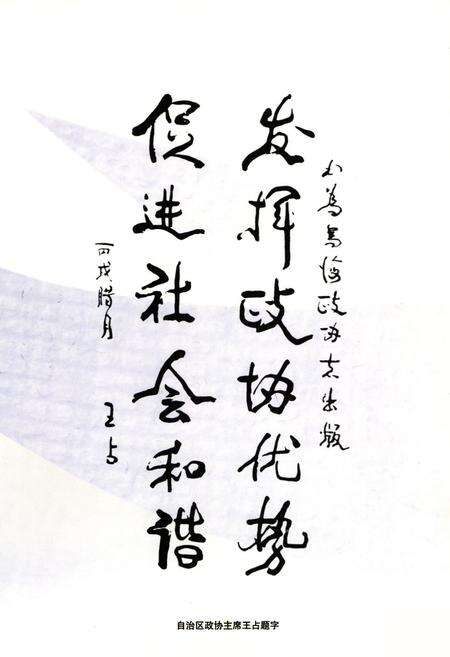 为乌海政协志出版
发挥政协优势
促进社会和谐
丙戌腊月
王占
自治区政协主席王占题字